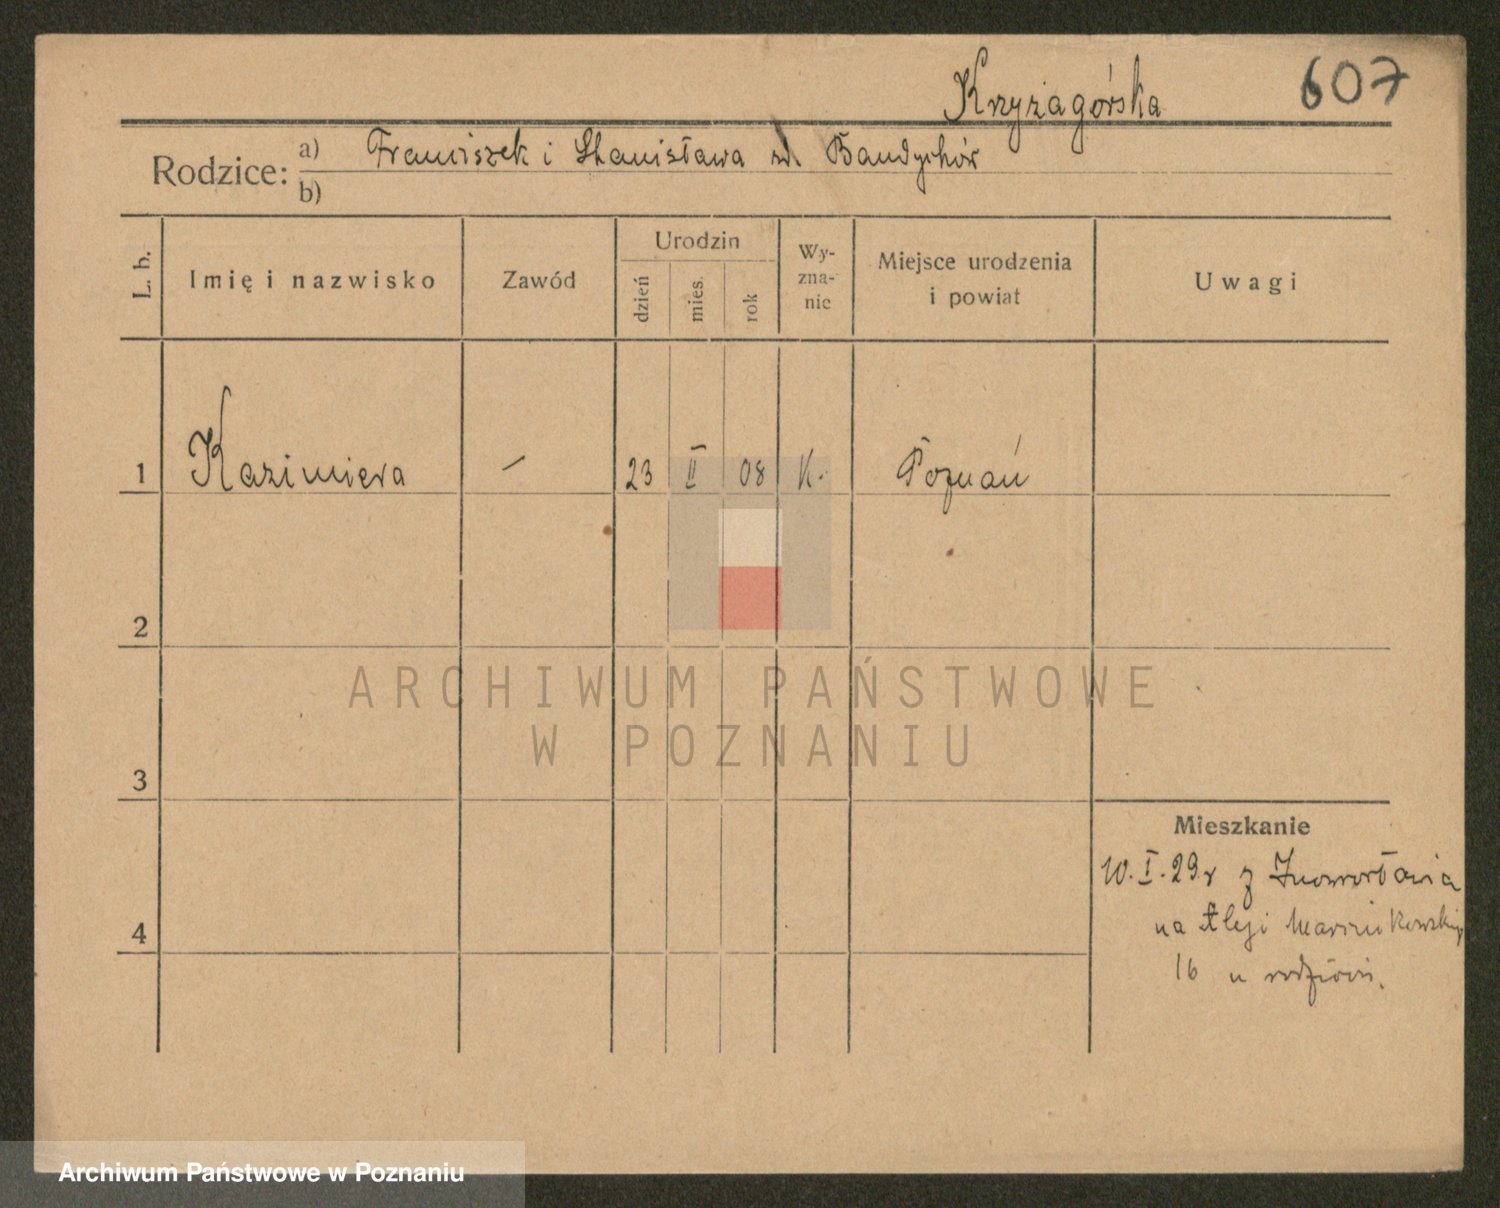 607
Krzyżagórska
Rodzice: a) Franciszek i Stanisława zd. Bandychór
b)
L. b. Imię i nazwisko Zawód Urodzin dzień mies. rok Wy-zna-nie Miejsce urodzenia i powiat Uwagi
1 Kazimiera — 23 II 08 K. Poznań
2
ARCHIWUM PAŃSTWOWE
W POZNANIU
3
Mieszkanie
10. I. 29 r z Inowrocławia
4
na Aleji Marcinkowskiego
16 u rodziców.
Archiwum Państwowe w Poznaniu